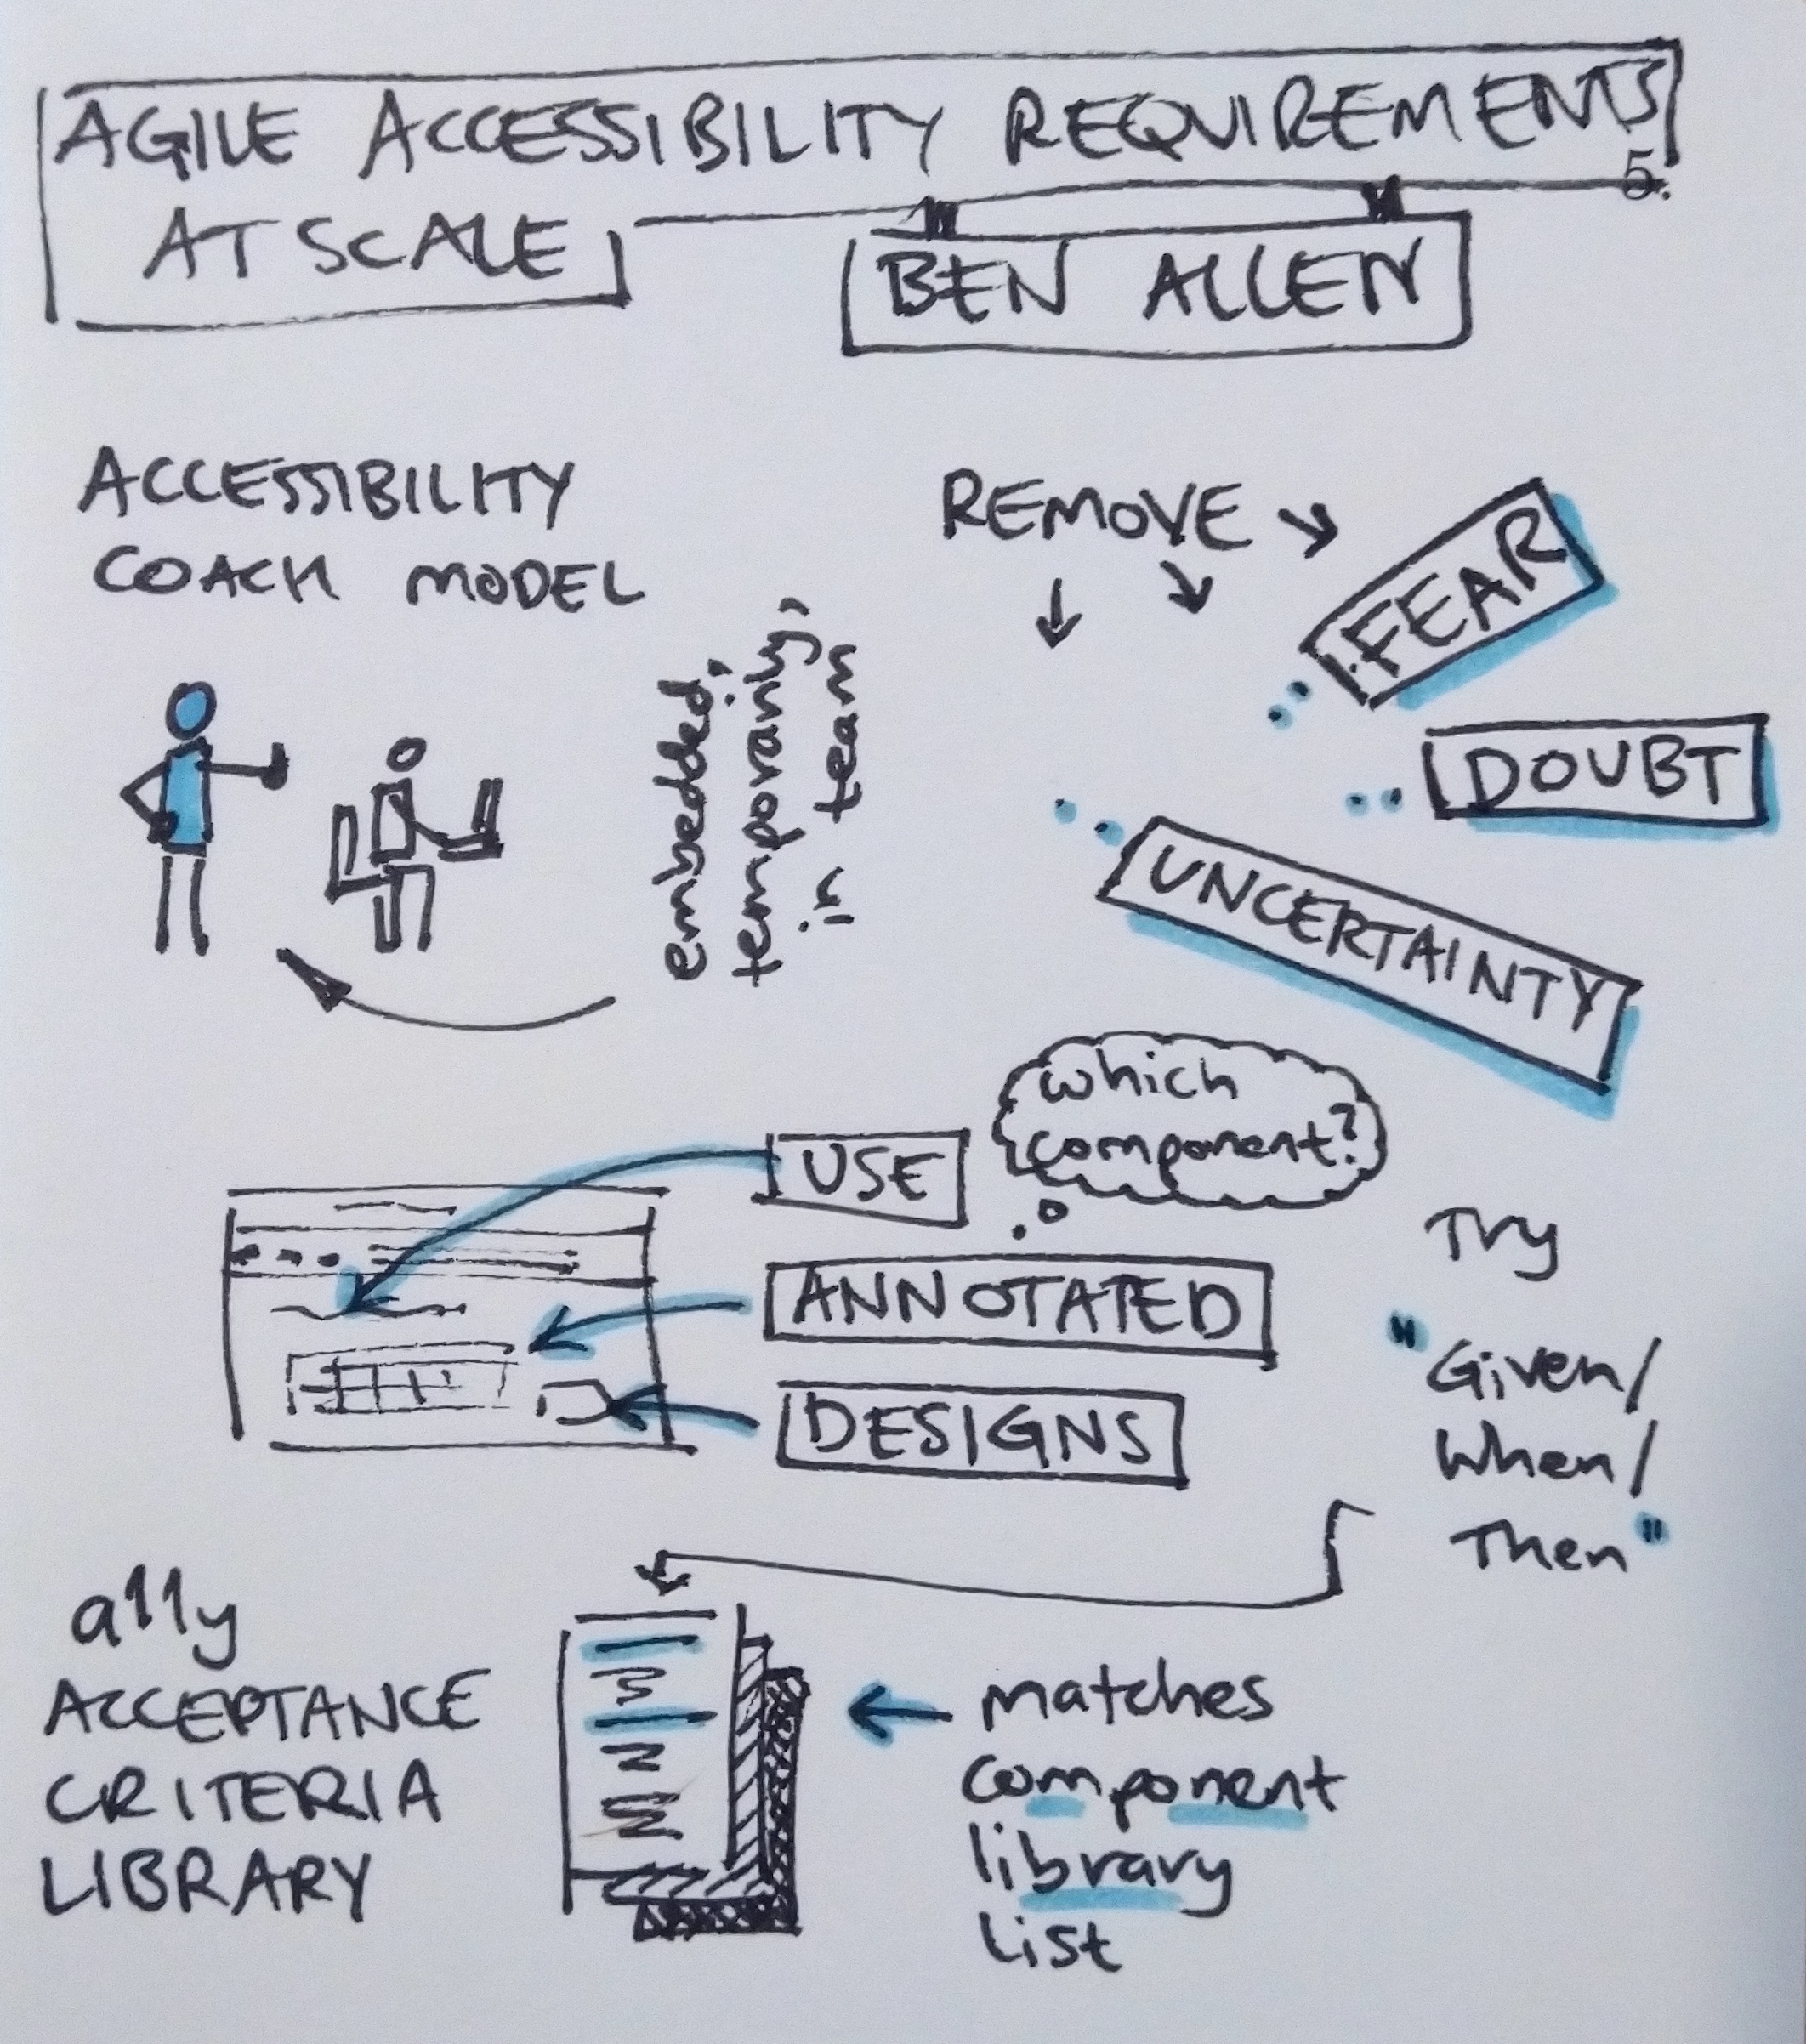 AGILE ACCESSIBILITY REQUIREMENTS
5.
AT SCALE
BEN ALLEN
ACCESSIBILITY
COACH MODEL
embedded,
temporarily,
in team
REMOVE
FEAR
DOUBT
UNCERTAINTY
which
component?
USE
ANNOTATED
DESIGNS
Try
"Given/
When/
Then"
a11y
ACCEPTANCE
CRITERIA
LIBRARY
matches
component
library
list